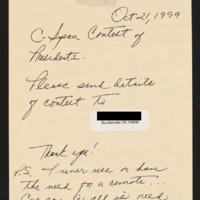 Oct 21, 1999
C-Span Contest of
Presidents.
Please send details
of contest to
Thank you!
P.S. I never use or have
the need for a remote...